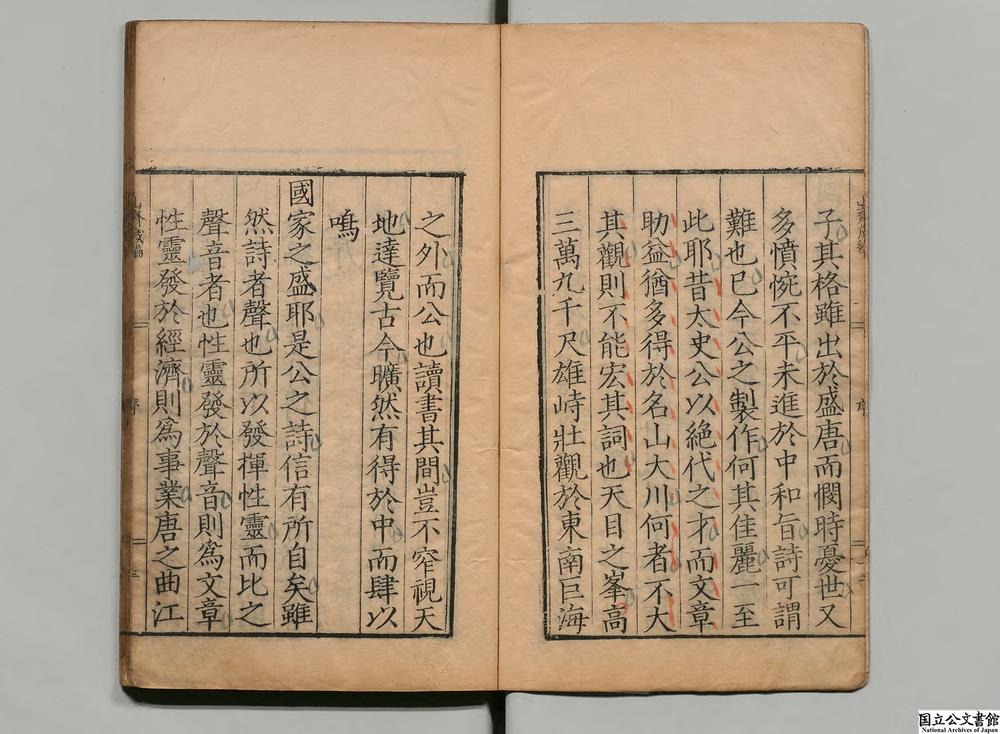 子其格雖出於盛唐而憫時憂世又
多憤惋不平未進於中和旨詩可謂
難也已今公之製作何其佳麗一至
此耶昔太史公以絕代之才而文章
助益猶多得於名山大川何者不大
其觀則不能宏其詞也天目之峯高
三萬九千尺雄峙壯觀於東南巨海
之外而公也讀書其間豈不窄視天
地達覽古今曠然有得於中而肆以
鳴
國家之盛耶是公之詩信有所自矣雖
然詩者聲也所以發揮性靈而比之
聲音者也性靈發於聲音則為文章
性靈發於經濟則爲事業唐之曲江
序
三
国立公文書館
National Archives of Japan